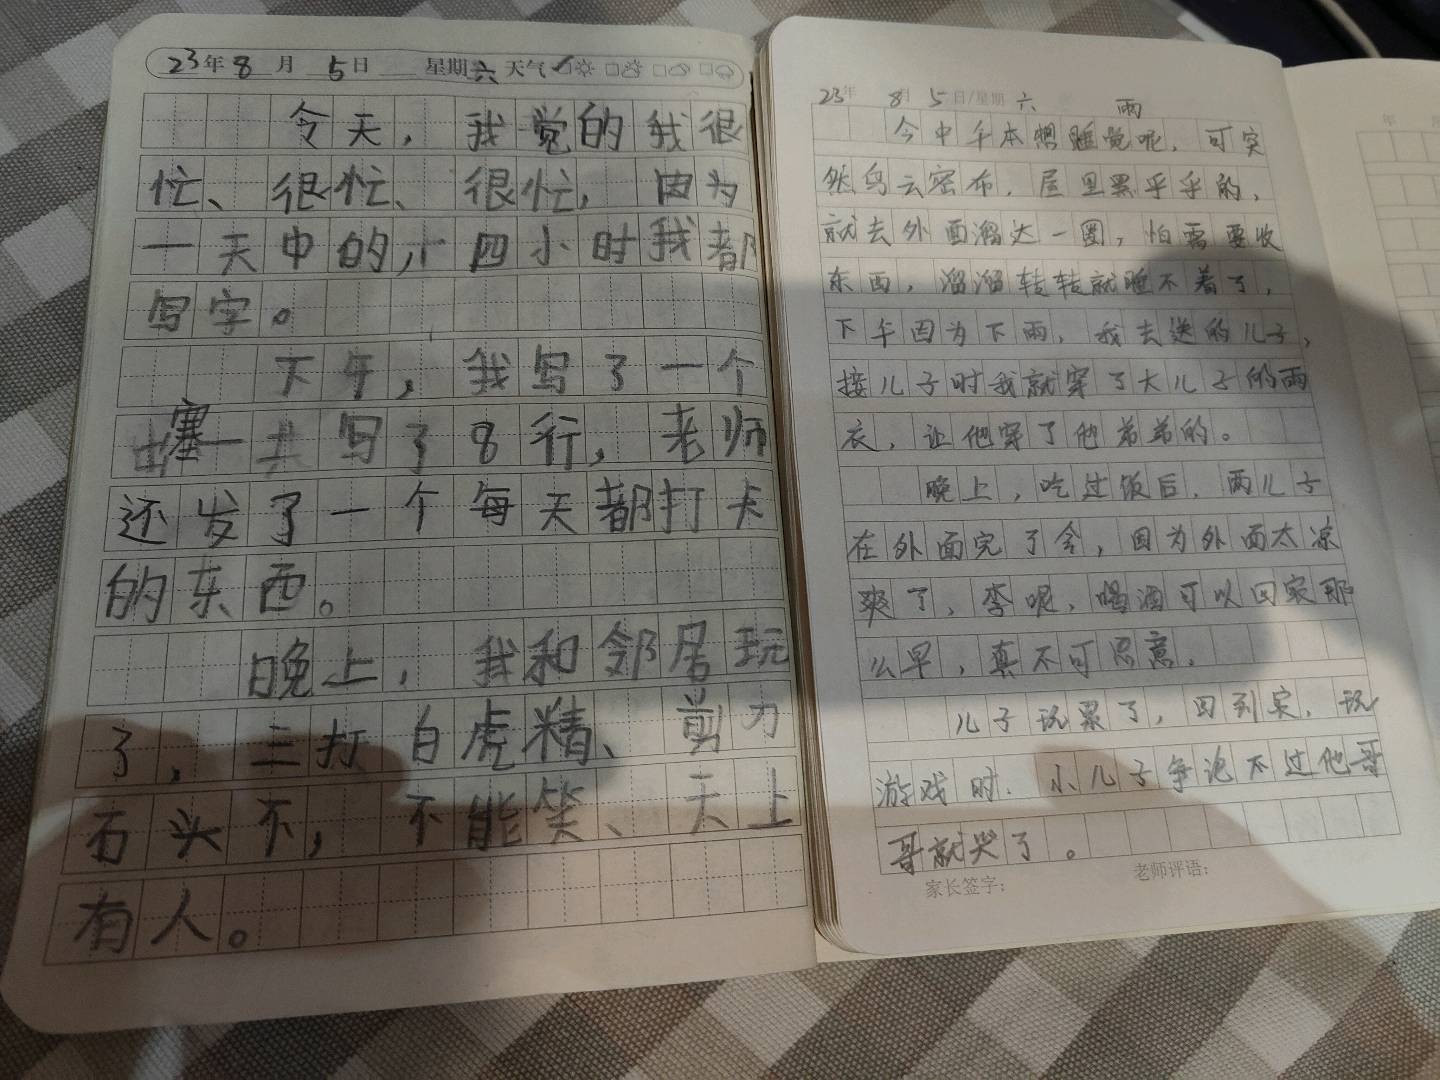 23年8月5日 星期六 天气
今天，我觉的我很
忙、很忙、很忙，因为
一天中的，十四小时我都
写字。
下午，我写了一个
塞一共写了8行，老师
还发了一个每天都打卡
的东西。
晚上，我和邻居玩
了，三打白虎精、剪刀
石头不，不能笑、天上
有人。
23年 8月 5日/星期 六 雨
今中午本想睡觉呢，可突
然乌云密布，屋里黑乎乎的，
就去外面溜达一圈，怕需要收
东西，溜溜转转就睡不着了，
下午因为下雨，我去送的儿子，
接儿子时我就穿了大儿子的雨
衣，让他穿了他弟弟的。
晚上，吃过饭后，两儿子
在外面完了会，因为外面太凉
爽了，李呢，喝酒可以回家那
么早，真不可思意。
儿子说累了，回到家，玩
游戏时，小儿子争论不过他哥
哥就哭了。
家长签字：
老师评语：
年 月